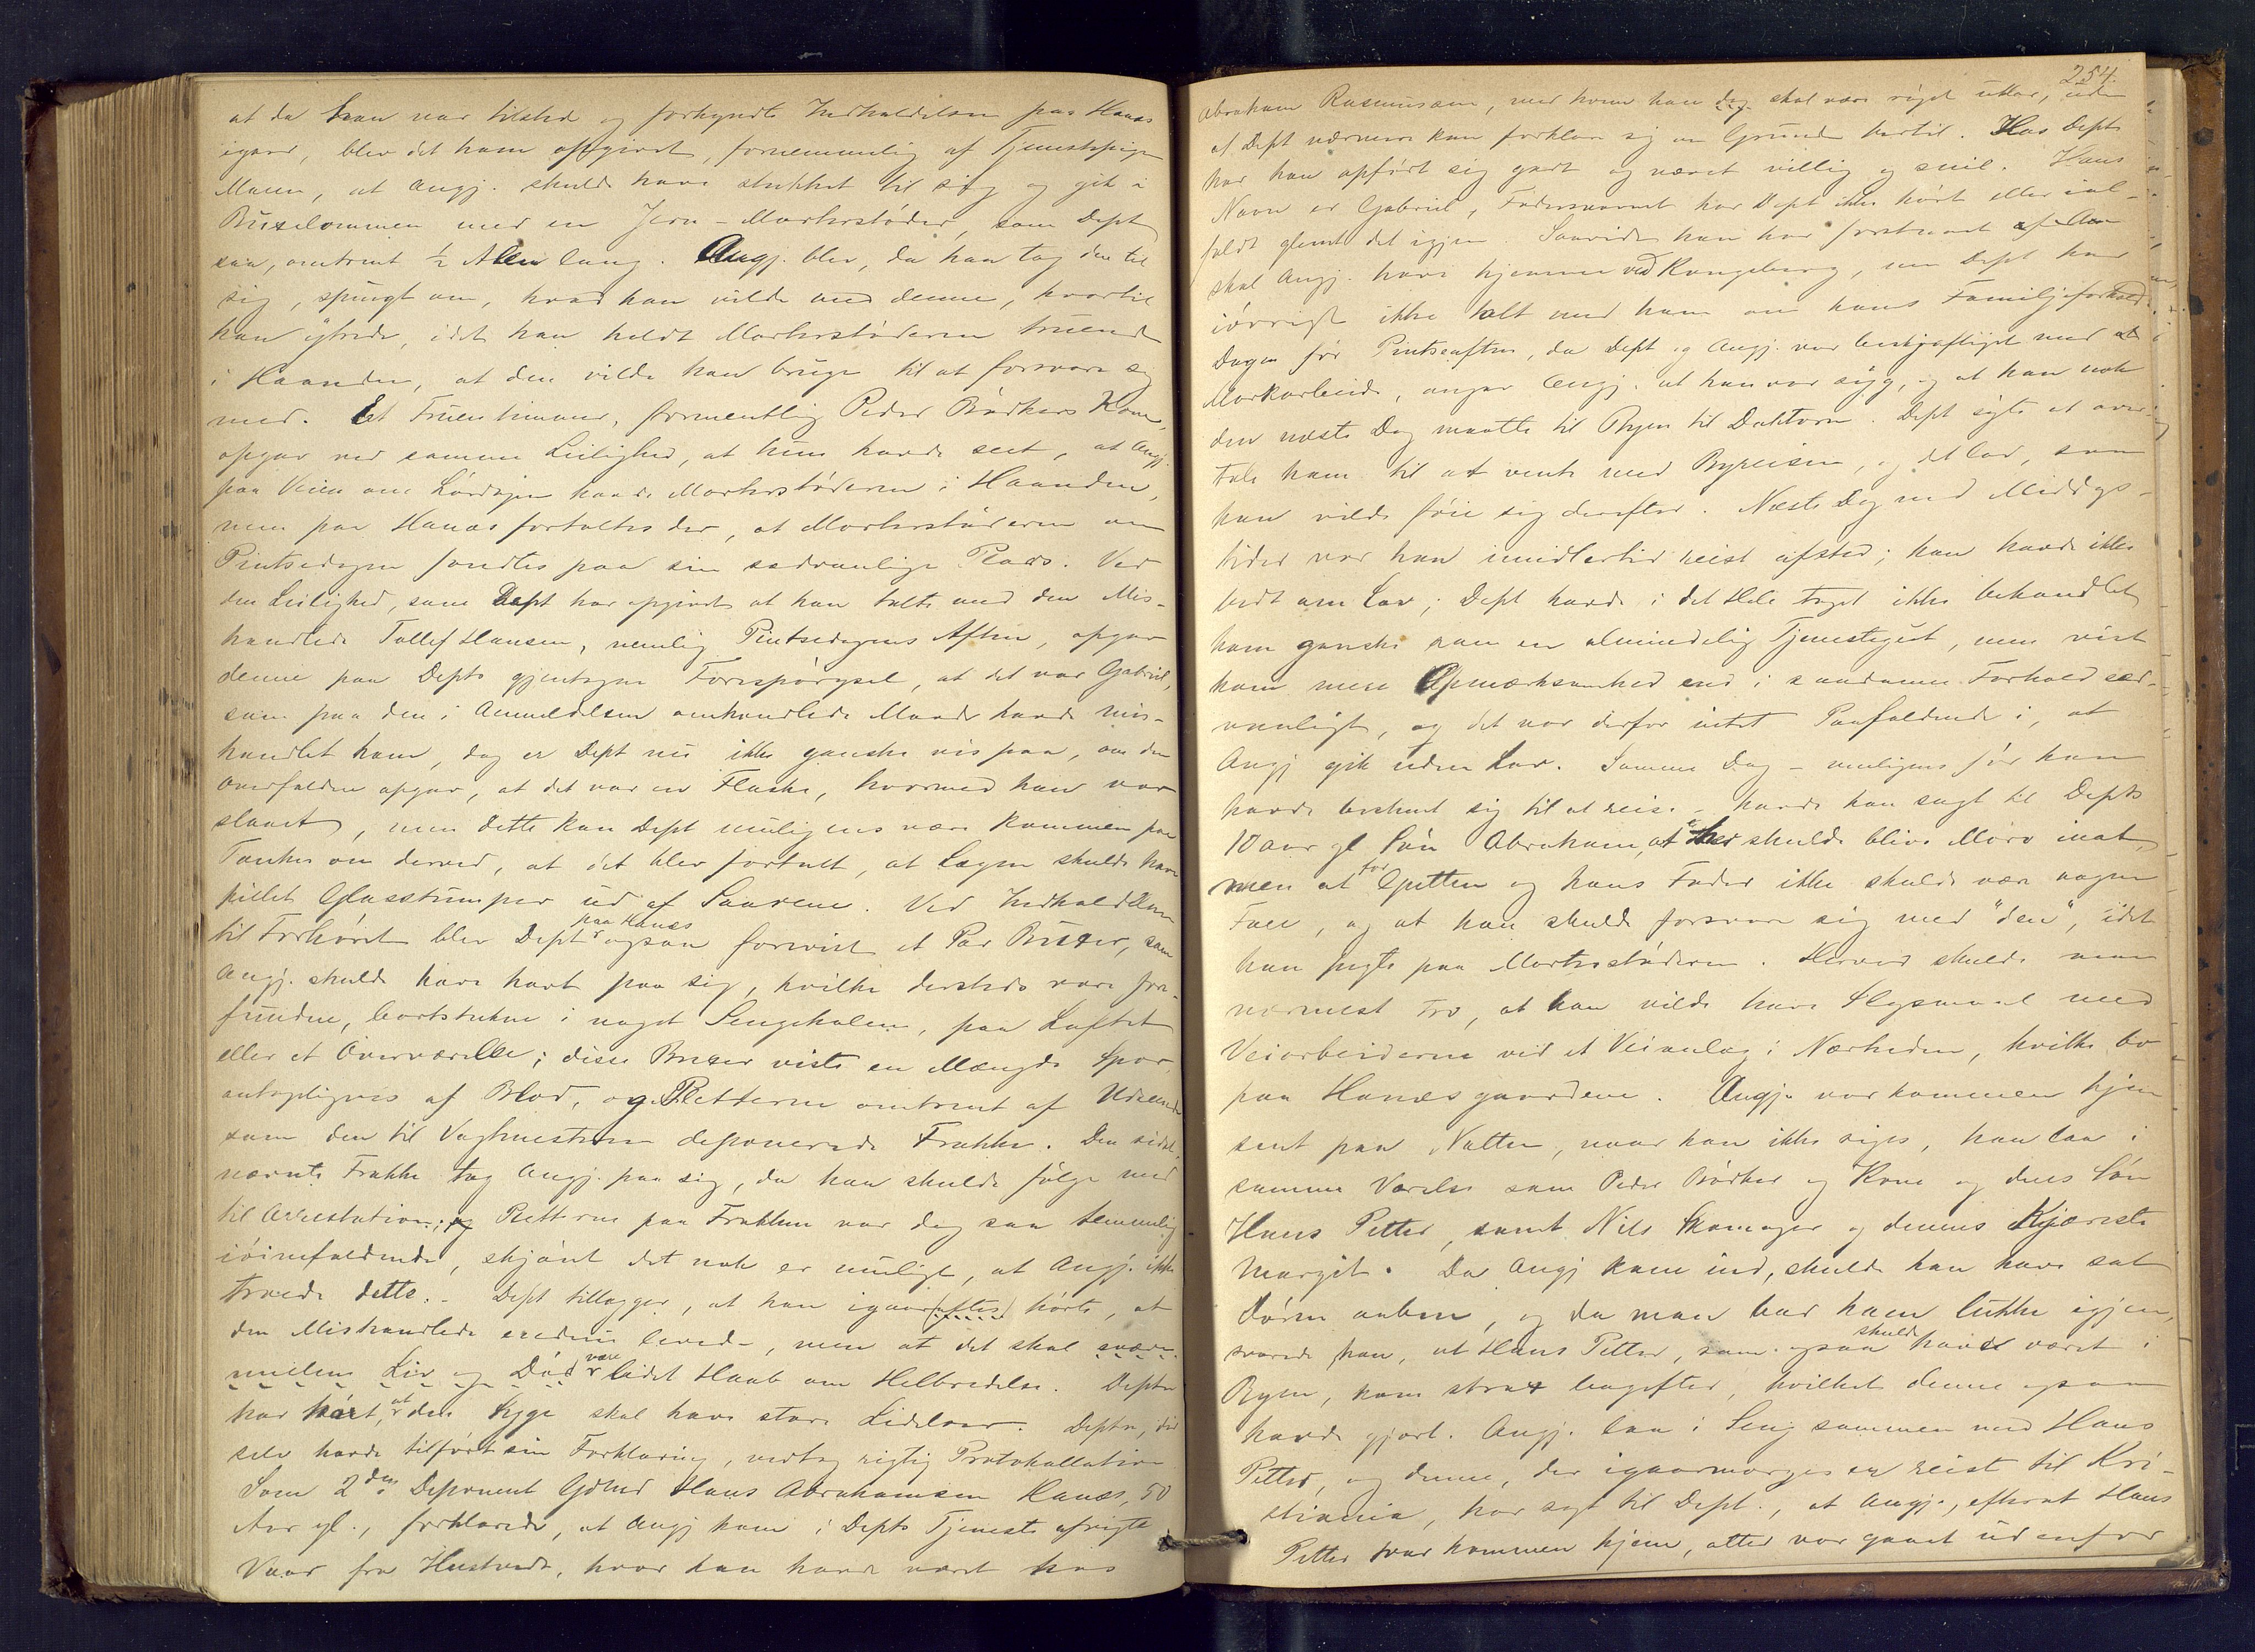 at da han var tilsted og forkyndte Indkaldelsen paa Hanæs
igaar, blev det ham opgivet, fornemmelig af Tjenestepige
Maren, at Angj. skulde have stukket til sig og gik i
Buxelommen med en Jern-Morterstøder, som Dept
saa, omtrent ½ Alen lang. Angj. blev, da han tog den til
sig, spurgt om, hvad han vilde med denne, hvortil
han ytrede, idet han holdt Morterstøderen truende
i Haanden, at den vilde han bruge til at forsvare sig
med. Et Fruentimmer, formentlig Peder Bødkers Kone,
opgav ved samme Leilighed, at hun havde seet, at Angj.
paa Veien om Lørdagen havde Morterstøderen i Haanden,
men paa Hanæs fortaltes der, at Morterstøderen om
Pintsedagen fandtes paa sin sædvanlige Plads. Ved
den Leilighed, som Dept har opgivet at han talte med den Mis-
handlede Tollef Hansen, nemlig Pintsedagens Aften, opgav
denne paa Depts gjentagne Forespørgsel, at det var Gabriel,
som paa den i Anmeldelsen omhandlede Maade havde mis-
handlet ham, dog er Dept nu ikke ganske vis paa, om den
overfaldne opgav, at det var en Flaske, hvormed han var
slaaet, men dette kan Dept muligens være kommen paa
Tanke om derved, at det blev fortalt, at Lægen skulde have
pillet Glasstumper ud af Saarene. Ved Indkaldelsen
til Forhøret blev Dept paa Hanæs ogsaa forevist et Par Buxer, som
Angj. skulde have havt paa sig, hvilke dersteds vare fore-
fundne, bortstukne i noget Sengehalm, paa Loftet
eller et Overværelse; disse Buxer viste en Mængde Spor,
antageligvis af Blod, og Pletterne omtrent af Udseende
som den til Vagtmesteren deponerede Frakke. Den sidst-
nævnte Frakke tog Angj. paa sig, da han skulde følge med
til Arrestation; Pletterne paa Frakken var dog saa temmelig
iøinefaldende, skjønt det nok er muligt, at Angj. ikke
troede dette. - Dept tillægger, at han igaar (aftes) hørte, at
den Mishandlede endnu levede, men at det skal svæve
mellem Liv og Død være lidet Haab om Helbredelse. Dept
har hørt, at den Syge skal have store Lidelser. Deptn, der
selv havde tilført sin Forklaring, vedtog rigtig Protokollation
Som 2den Deponent Gdbr Hans Abrahamsen Hanæs, 50
Aar gl., forklarede, at Angj kom i Depts Tjeneste afvigte
Vaar fra Hustvedt, hvor han havde været hos
254.
Abraham Rasmussen, med hvem han dog skal være røget uklar, uden
at Dept nærmere kan forklare sig om Grunden hertil. Hos Dept
har han opført sig godt og været villig og snil. Hans
Navn er Gabriel, Fadersnavnet har Dept ikke hørt eller ial-
faldt glemt det igjen Saavidt han har forstaaet
skal Angj. have hjemme ved Kongsberg, men Dept har
iøvrigt ikke talt med ham om hans Familjeforhold.
Dagen før Pintseaften, da Dept og Angj. var beskjæftiget med
Markarbeide, angav Angj. at han var syg, og at han nok
den næste Dag maatte til Byen til Doktoren. Dept søgte at over-
tale ham til at vente med Byreisen, og det lod, som
han vilde føie sig derefter. Næste Dag ved Middags-
tider var han imidlertid reist afsted; han havde ikke
bedt om Lov; Dept havde i det Hele taget ikke behandlet
ham ganske som en almindelig Tjenestegut, men vist
ham mere Opmærksomhed end i saadanne Forhold sæd-
vanligt, og det var derfor intet Paafaldende i, at
Angj gik uden Lov. Samme Dag - muligens før han
havde bestemt sig til at reise - havde han sagt til Depts
10 aar gl Søn Abraham, at her skulde blive Moro inat,
men at for Gutten og hans Fader ikke skulde være nogen
Fare, og at han skulde forsvare sig med "den", idet
han pegte paa Morterstøderen. Herved skulde man
nærmest tro, at han vilde have Slagsmaal med
Veiarbeiderne ved et Veianlæg i Nærheden, hvilke bo
paa Hanæsgaardene. Angj. var kommen hjem
sent paa Natten, naar kan ikke siges, han laa i
samme Værelse som Peder Bødker og Kone og deres Søn
Hans Petter, samt Nils Skomager og dennes Kjæreste
Margit. Da Angj kom ind, skulde han have sat
Døren aaben, og da man bad ham lukke igjen,
svarede han, at Hans Petter, som ogsaa skulde have været i
Byen, kom strax bagefter, hvilket denne ogsaa
havde gjort. Angj. laa i Seng sammen med Hans
Petter, og denne, der igaarmorges er reist til Kri-
stiania, har sagt til Dept., at Angj., efterat Hans
Petter var kommen hjem, atter var gaaet udenfor